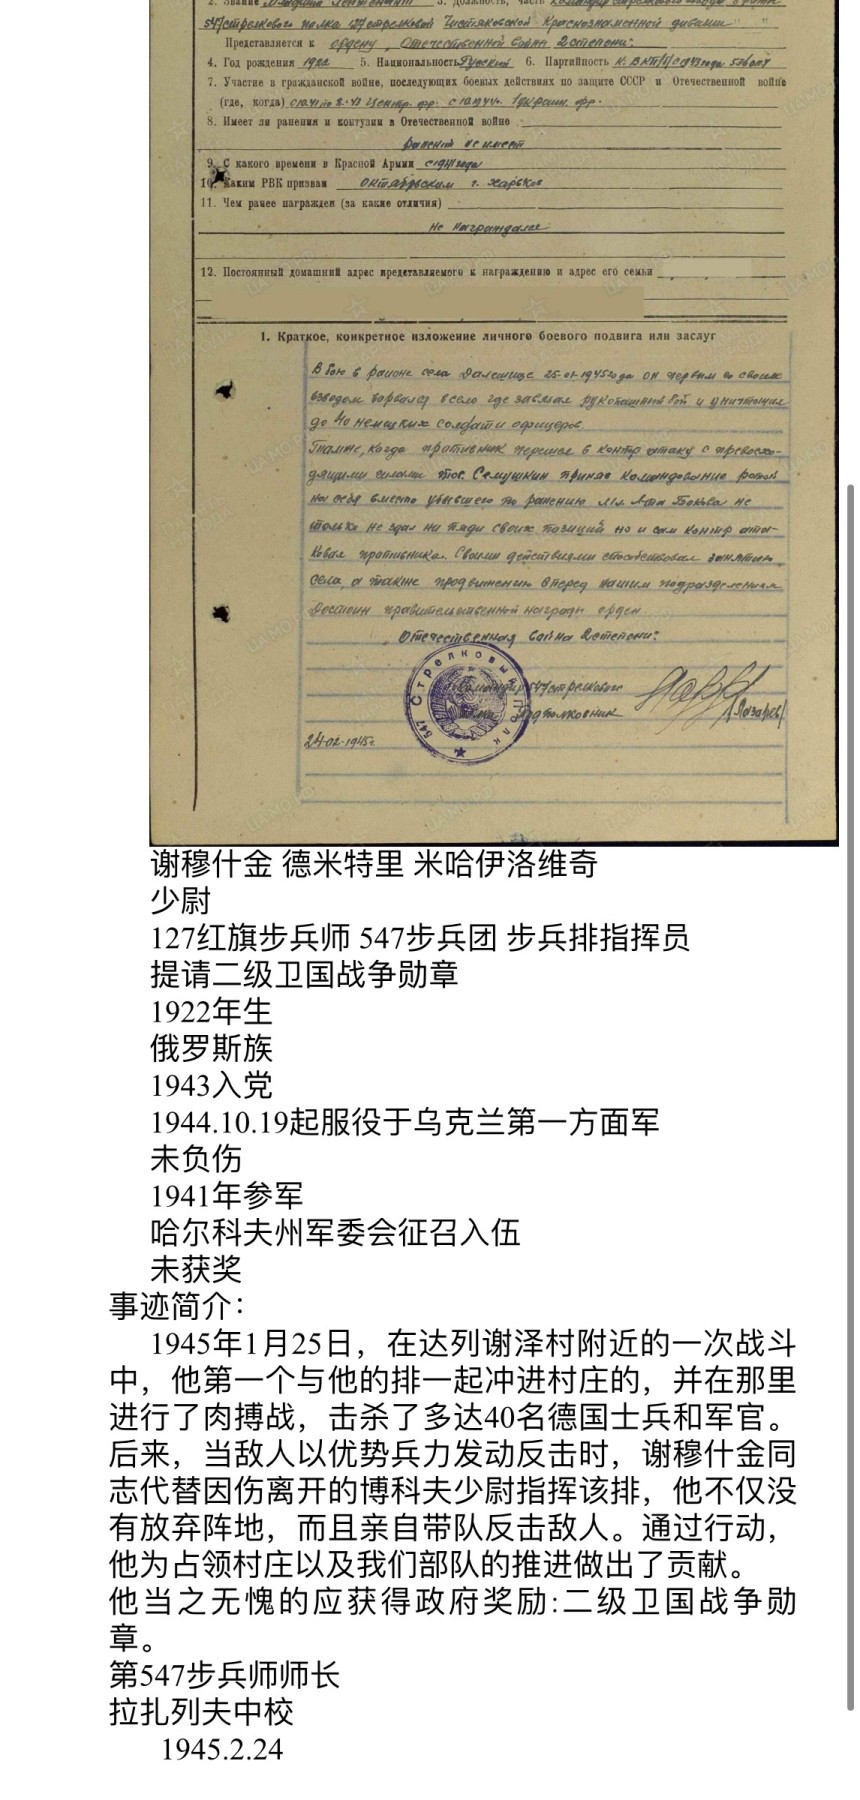 2. Звание Младший лейтенант 3. Должность, часть командир стрелкового взвода
547 стрелкового полка 127 стрелковой Чистяковской Краснознаменной дивизии
Представляется к ордену "Отечественной войны 2 степени".
4. Год рождения 1922 5. Национальность Русский 6. Партийность
7. Участие в гражданской войне, последующих боевых действиях по защите СССР и Отечественной войне
(где, когда)
8. Имеет ли ранения и контузии в Отечественной войне
ранений не имеет
9. С какого времени в Красной Армии с 1941 года
10. Каким РВК призван Октябрьским г. Харьков
11. Чем ранее награжден (за какие отличия)
не награждался
12. Постоянный домашний адрес представляемого к награждению и адрес его семьи
1. Краткое, конкретное изложение личного боевого подвига или заслуг
В бою в районе села Далешице 25-01-1945 года он первым со своим
взводом ворвался в село где завязал рукопашный бой и уничтожил
до 40 немецких солдат и офицеров.
когда противник перешел в контр атаку с превосхо-
дящими силами тов. Семушкин принял командование ротой
на себя вместо убывшего по ранению Бокова не
только не сдал ни пяди своих позиций но и сам контр ата-
ковал противника. Своими действиями способствовал занятию
села, а также продвижению вперед нашим подразделениям
Достоин правительственной награды орден
"Отечественная война 2 степени".
Командир 547 стрелкового
полка подполковник /Лазарев/
547 Стрелковый Полк
24-02-1945г.
谢穆什金 德米特里 米哈伊洛维奇
少尉
127红旗步兵师 547步兵团 步兵排指挥员
提请二级卫国战争勋章
1922年生
俄罗斯族
1943入党
1944.10.19起服役于乌克兰第一方面军
未负伤
1941年参军
哈尔科夫州军委会征召入伍
未获奖
事迹简介：
1945年1月25日，在达列谢泽村附近的一次战斗
中，他第一个与他的排一起冲进村庄的，并在那里
进行了肉搏战，击杀了多达40名德国士兵和军官。
后来，当敌人以优势兵力发动反击时，谢穆什金同
志代替因伤离开的博科夫少尉指挥该排，他不仅没
有放弃阵地，而且亲自带队反击敌人。通过行动，
他为占领村庄以及我们部队的推进做出了贡献。
他当之无愧的应获得政府奖励:二级卫国战争勋
章。
第547步兵师师长
拉扎列夫中校
1945.2.24